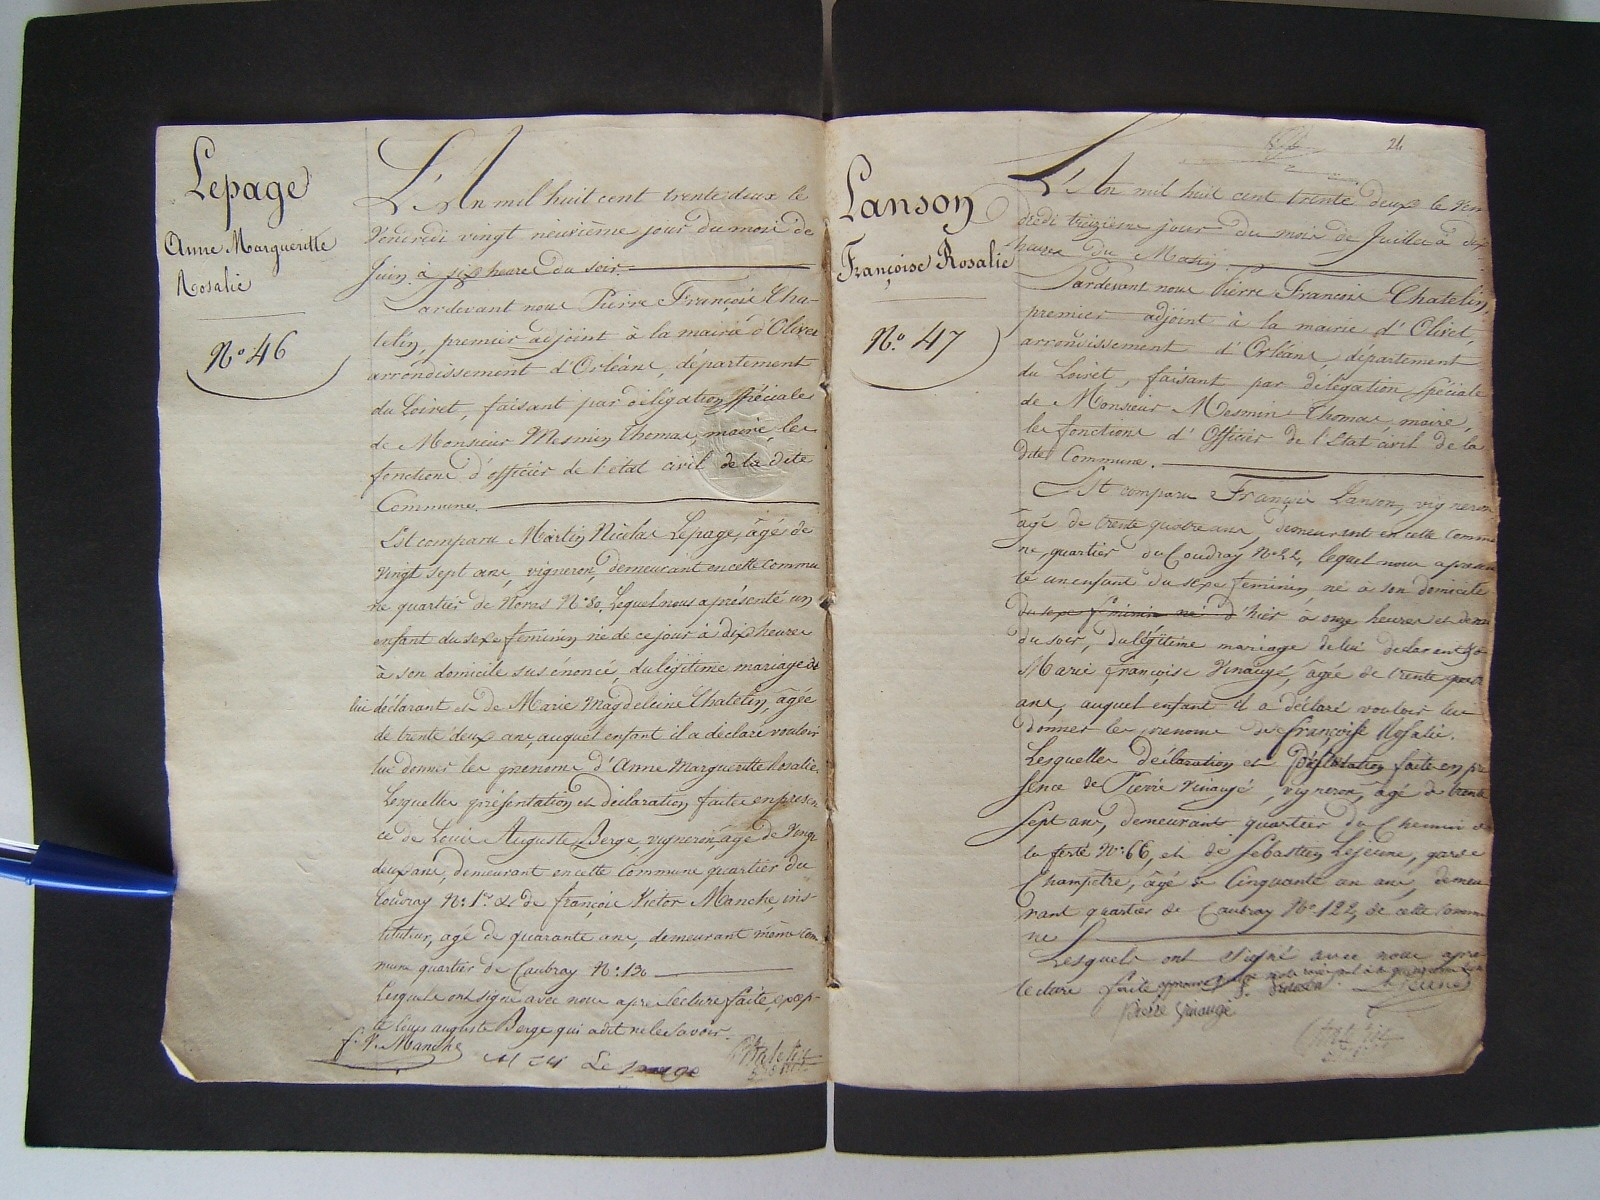 Lepage
Anne Margueritte
Rosalie
N.º 46
L'An mil huit cent trente deux le
Vendredi vingt neuvième jour du mois de
Juin, à six heures du soir.
Pardevant nous Pierre François Cha-
telin, premier adjoint à la mairie d'Olivet
arrondissement d'Orléans, département
du Loiret, faisant par délégation spéciale
de Monsieur Mesmin Thomas, maire, les
fonctions d'officier de l'état civil de la dite
Commune.
Est comparu Martin Nicolas Lepage, âgé de
vingt sept ans, vigneron, demeurant en cette commu
ne quartier de Noras N.º 80, Lequel nous a présenté un
enfant du sexe féminin né de ce jour à dix heures
à son domicile sus énoncé, du légitime mariage de
lui déclarant et de Marie Magdeleine Chatelin, âgée
de trente deux ans, auquel enfant il a déclaré vouloir
lui donner les prenoms d'Anne Margueritte Rosalie.
Lesquelles présentation et déclaration faites en présen
ce de Louis Auguste Berge, vigneron, âgé de vingt
deux ans, demeurant en cette Commune quartier du
Coudray N.º 1.er et de françois Victor Manche, ins-
tituteur, âgé de quarante ans, demeurant même com
mune quartier de Caubray N.º 130
Lesquels ont signé avec nous après lecture faite, excep-
té Louis auguste Berge qui a dit ne le savoir.
f. V. Manche
Le page
Chatelin
adjoint
21
Lanson
Françoise Rosalie
N.º 47
L'An mil huit cent trente deux le Ven
dredi treizième jour du mois de Juillet à dix
heures du Matin.
Pardevant nous Pierre François Chatelin,
premier adjoint à la mairie d'Olivet,
arrondissement d'Orléans département
du Loiret, faisant par délégation spéciale
de Monsieur Mesmin Thomas, maire,
les fonctions d'Officier de l'Etat civil de la
dite Commune.
Est comparu François Lanson, vigneron
âgé de trente quatre ans, demeurant en cette commu
ne, quartier du Coudray N.º 22, lequel nous a présen
té un enfant du sexe féminin né à son domicile
du sexe féminin né d'hier à onze heures et demie
du soir, du légitime mariage de lui déclarant et de
Marie françoise Vinauge, âgée de trente quatre
ans, auquel enfant il a déclaré vouloir lui
donner les prenoms de françoise Rosalie.
Lesquelles déclaration et présentation faites en pré
sence de Pierre Vinauge, vigneron, âgé de trente
sept ans, demeurant quartier du Chemin de
la ferté N.º 66, et de Sébastien Lejeune, garde
Champêtre, âgé de Cinquante un ans, demeu
rant quartier de Caubray N.º 122, de cette commu
ne
Lesquels ont signé avec nous après
lecture faite
Pierre Vinauge
Lejeune
Chatelin
adjoint